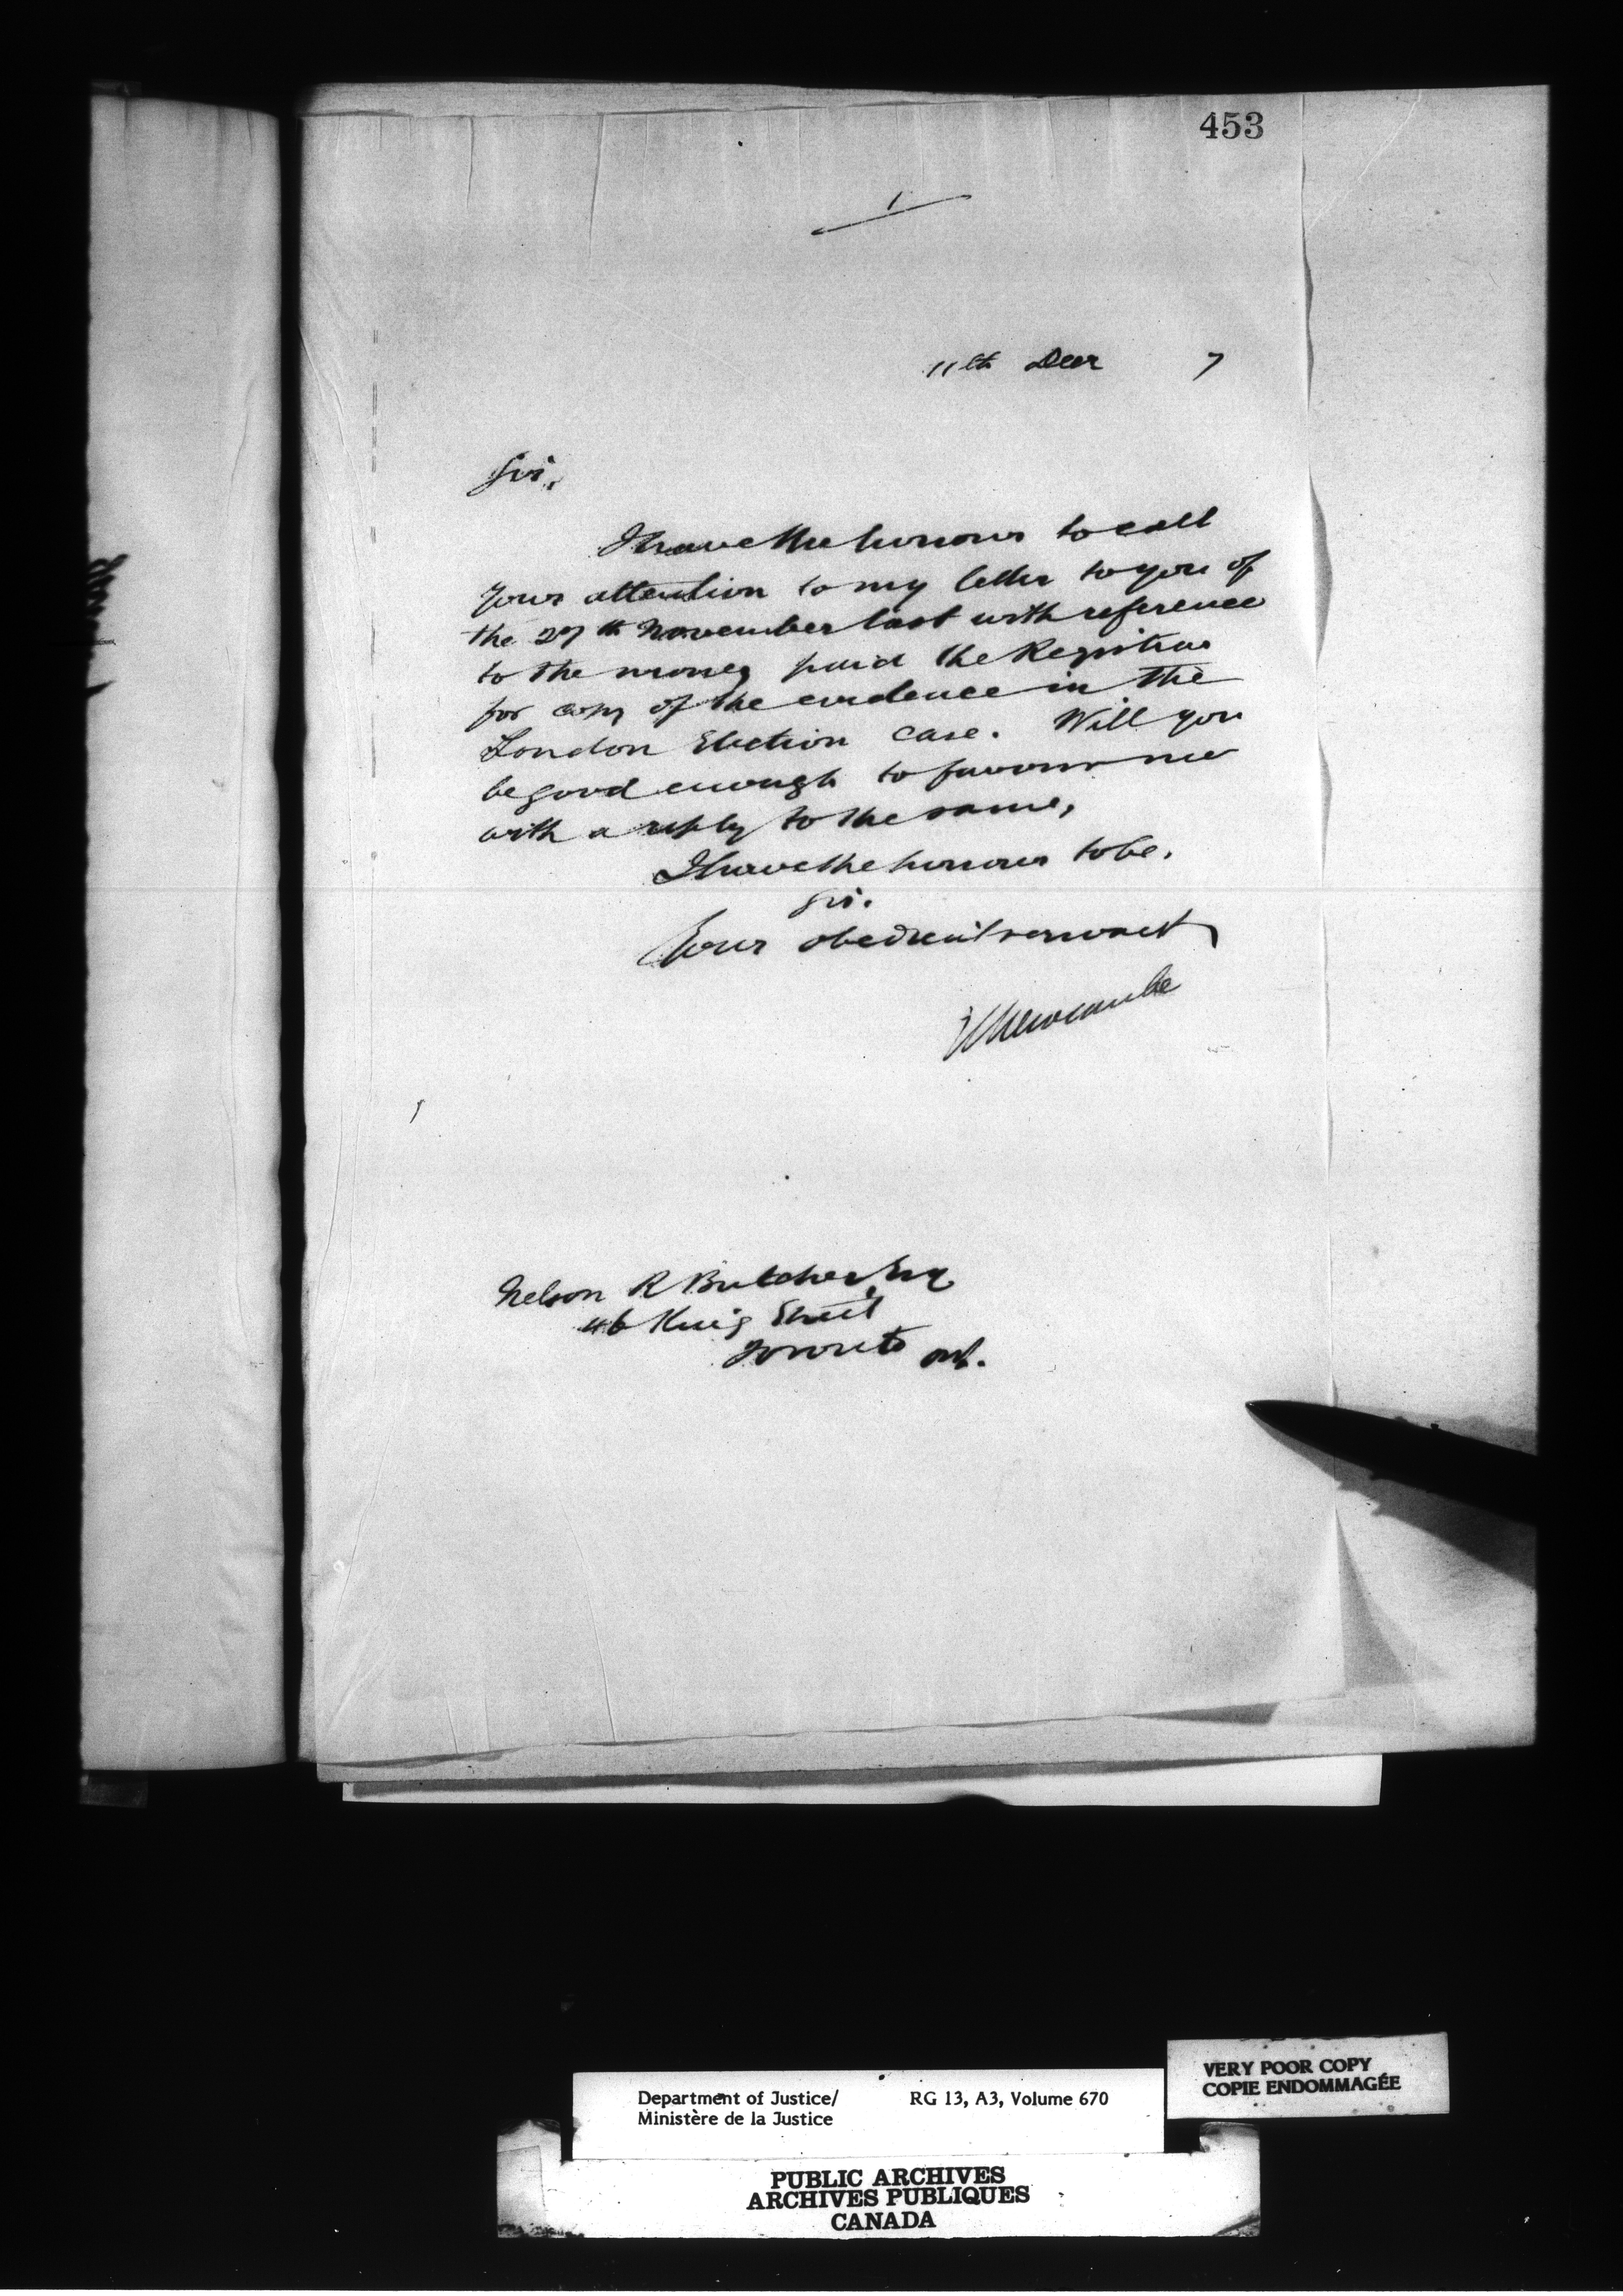 453
1
11th Decr 7
Sir,
I have the honour to call
your attention to my letter to you of
the 27th November last with reference
to the money paid the Registrar
for copy of the evidence in the
London Election case. Will you
be good enough to favour me
with a reply to the same,
I have the honour to be,
Sir.
Your obedient servant
Newcombe
Nelson R Butcher, Esq
46 King Street
Toronto Ont.
VERY POOR COPY
COPIE ENDOMMAGÉE
Department of Justice/ RG 13, A3, Volume 670
Ministère de la Justice
PUBLIC ARCHIVES
ARCHIVES PUBLIQUES
CANADA